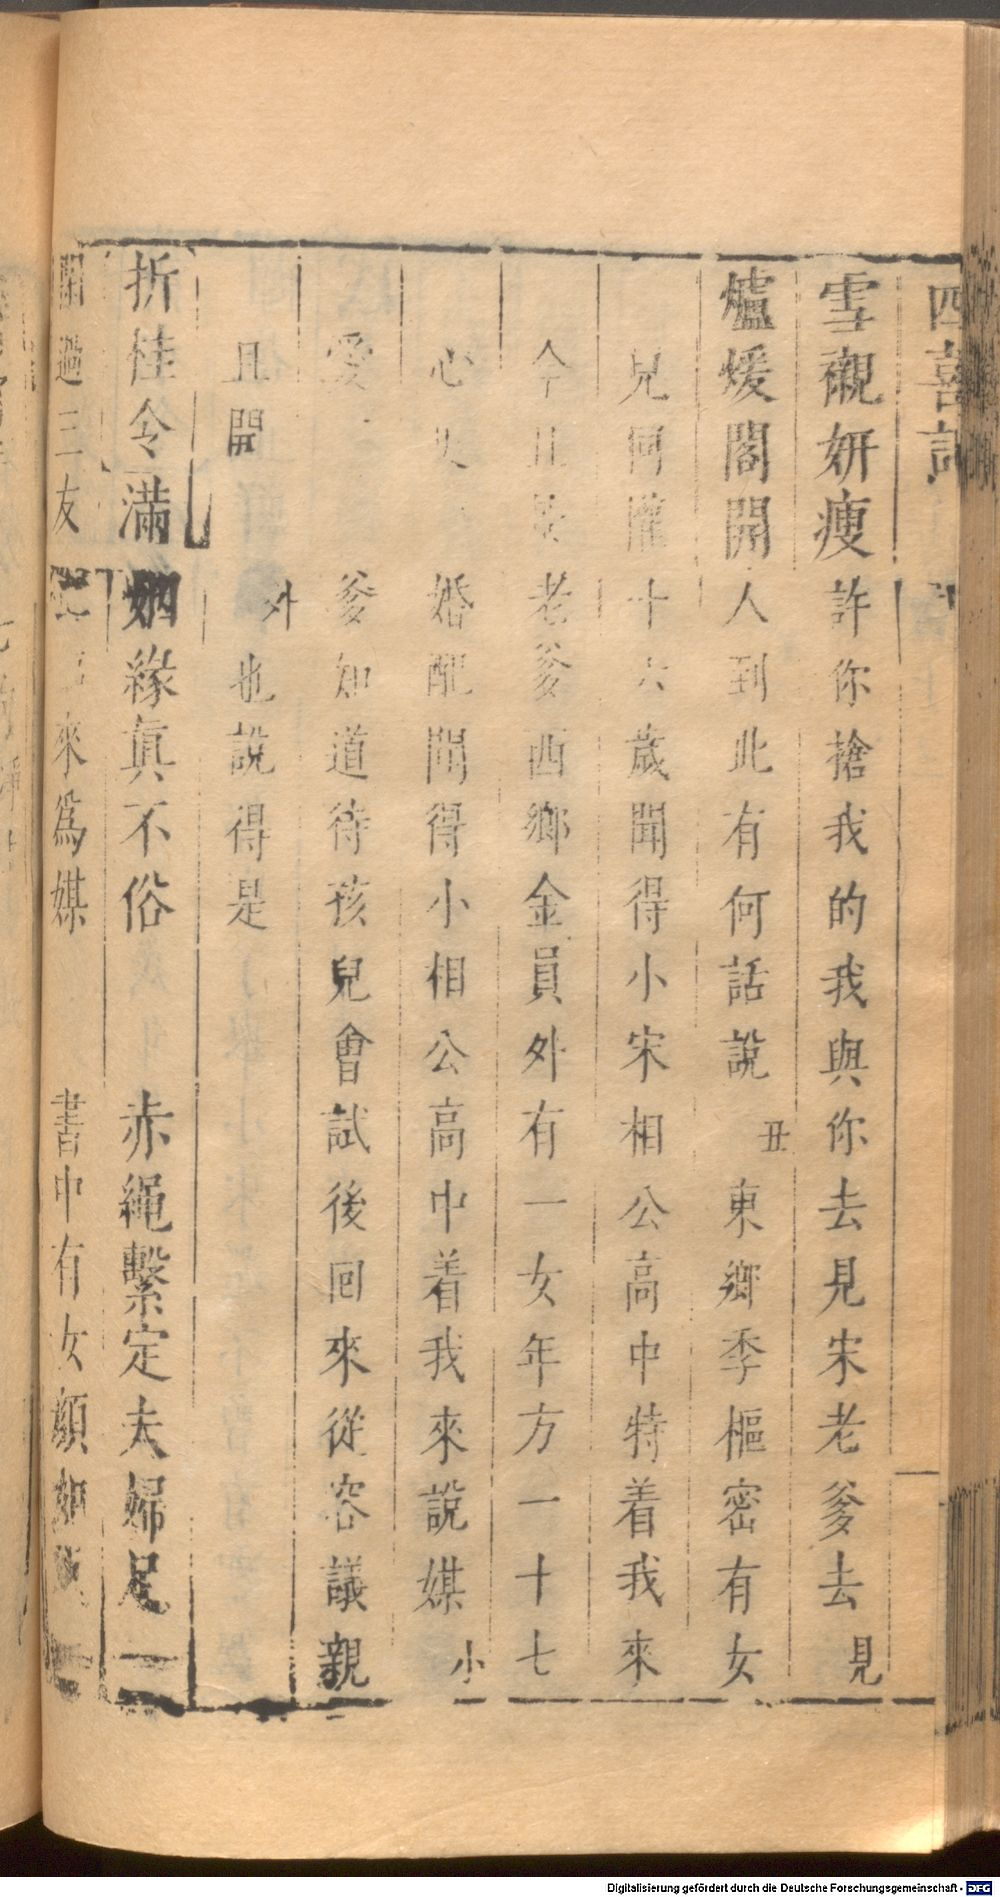 四喜記
雪襯妍瘦許你搶我的我與你去見宋老爹去見
爐煖閣開人到此有何話說丑東鄉季樞密有女
十六歲聞得小宋相公高中特着我來
老爹西鄉金員外有一女年方一十七
婚配聞得小相公高中着我來說媒小
爹知道待孩兒會試後回來從容議親
且開外也說得是
折桂令滿 姻緣眞不俗 赤繩繫定夫婦足
過三友 來爲媒 書中有女顔如
Digitalisierung gefördert durch die Deutsche Forschungsgemeinschaft - DFG